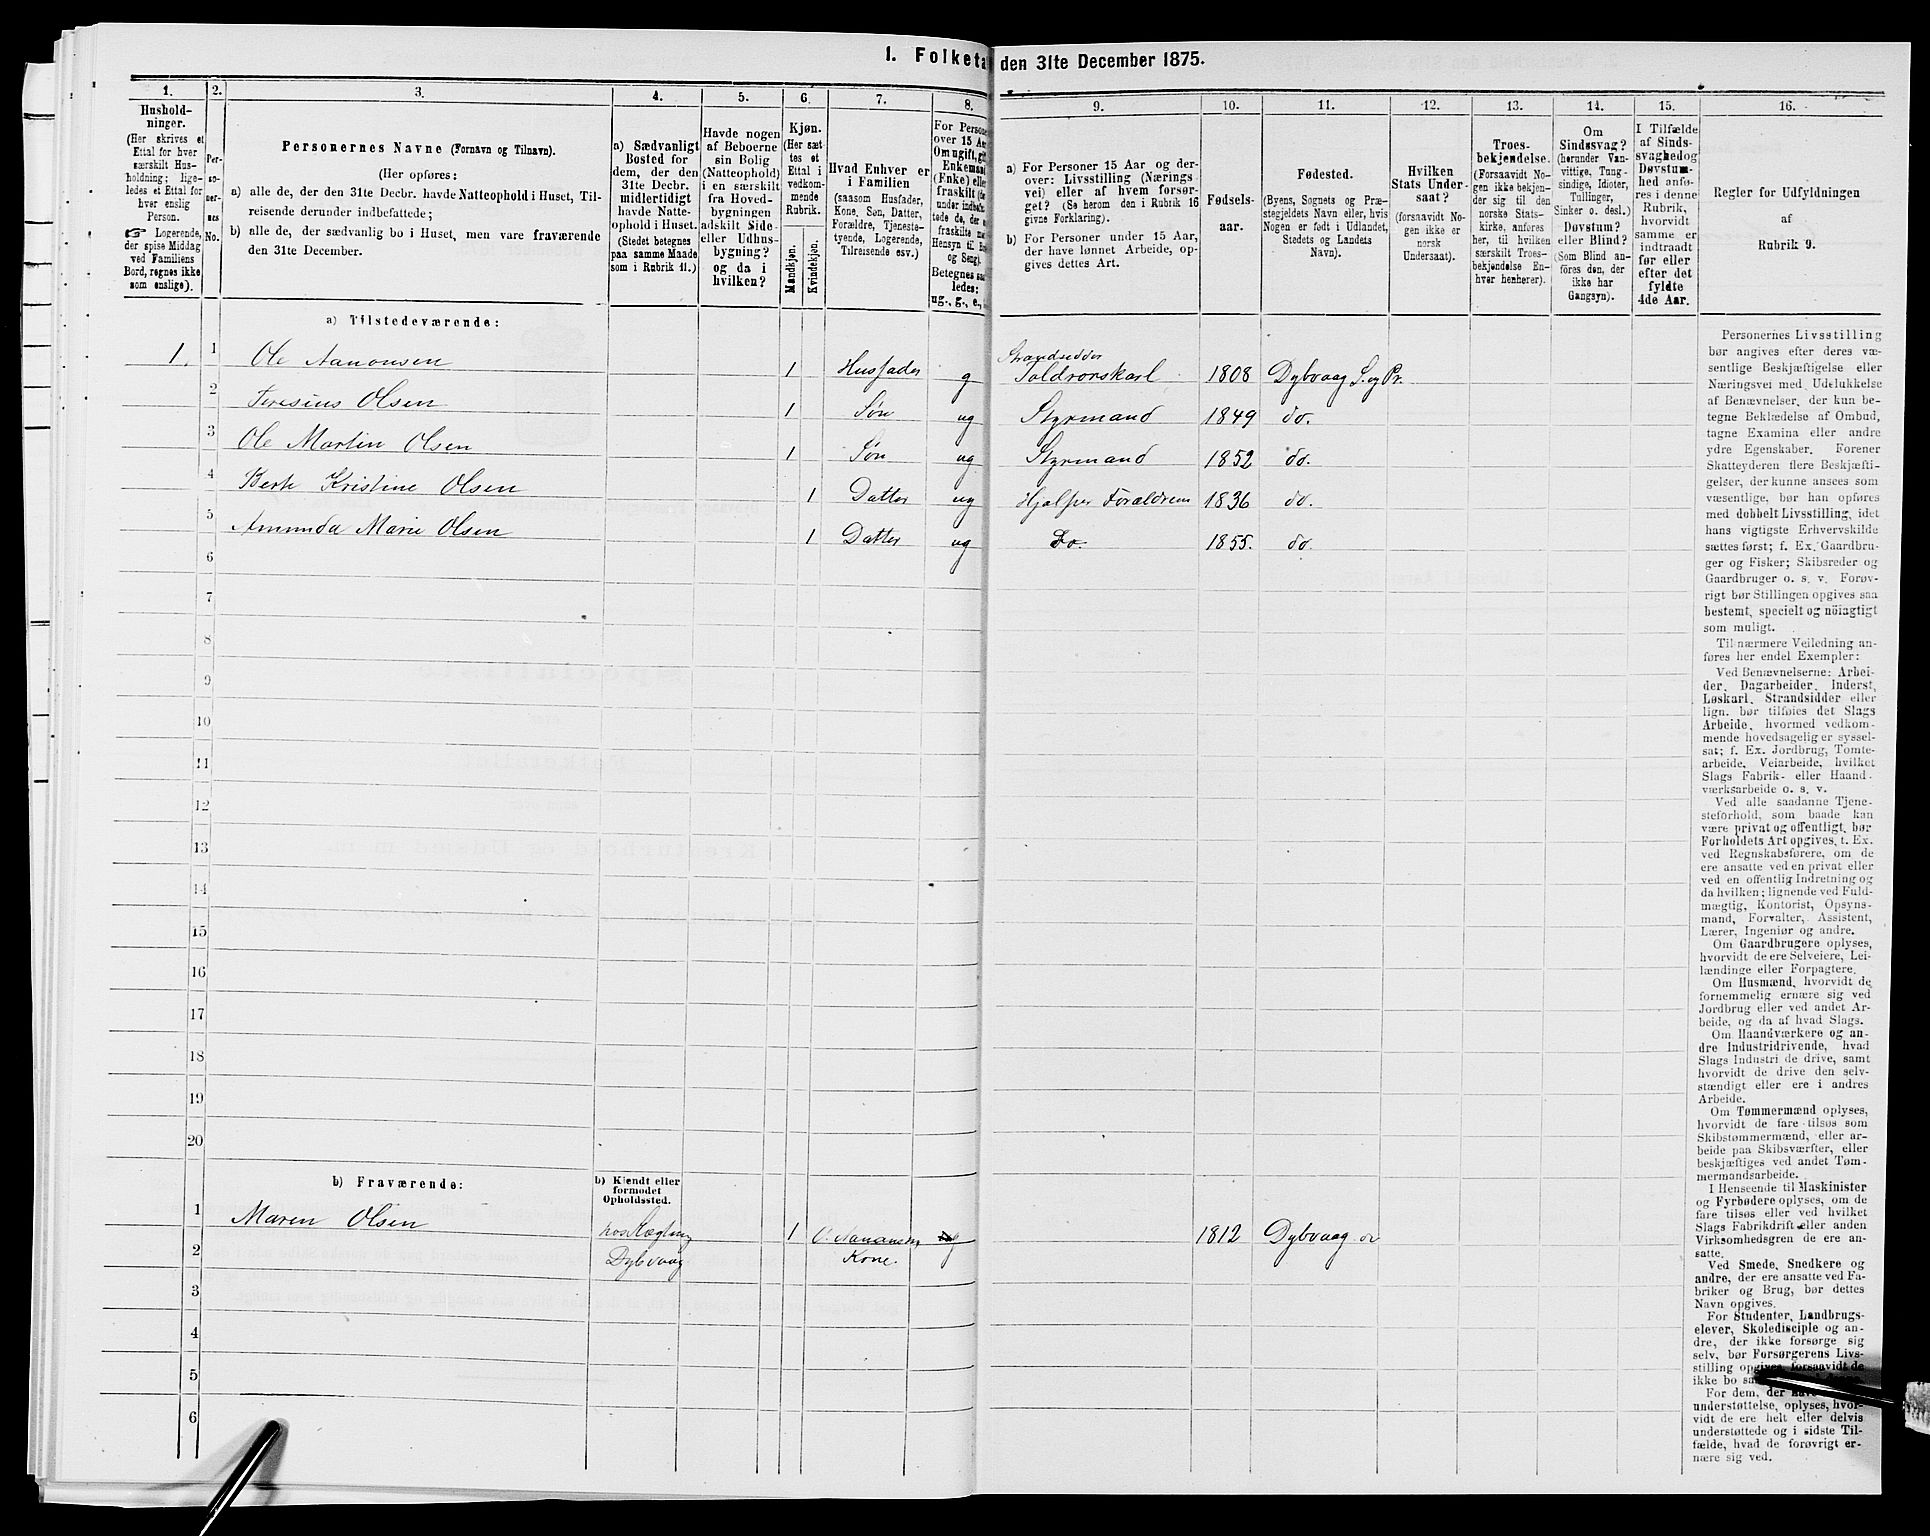 1. Folketæ den 31te December 1875.
1. 2. 3. 4. 5. 6. 7. 8. 9. 10. 11. 12. 13. 14. 15. 16.
Hushold-
ninger.
(Her skrives et
Ettal for hver
særskilt Hus-
holdning; lige-
ledes et Ettal for
hver enslig
Person.
☞ Logerende,
der spise Middag
ved Familiens
Bord, regnes ikke
som enslige).
Per-
so-
ner-
nes
No.
Personernes Navne (Fornavn og Tilnavn).
(Her opføres:
a) alle de, der den 31te Decbr. havde Natteophold i Huset, Til-
reisende derunder indbefattede;
b) alle de, der sædvanlig bo i Huset, men vare fraværende
den 31te December.
a) Sædvanligt
Bosted for
dem, der den
31te Decbr.
midlertidigt
havde Natte-
ophold i Huset.
(Stedet betegnes
paa samme Maade
som i Rubrik 11.)
Havde nogen
af Beboerne
sin Bolig
(Natteophold)
i en særskilt
fra Hoved-
bygningen
adskilt Side-
eller Udhus-
bygning?
og da i
hvilken?
Kjøn.
(Her sæt-
tes et
Ettal i
vedkom-
mende
Rubrik.
Mandkjøn.
Kvindekjøn.
Hvad Enhver er
i Familien
(saasom Husfader,
Kone, Søn, Datter,
Forældre, Tjeneste-
tyende, Logerende,
Tilreisende osv.)
For Persone
over 15 Aar
Om ugift, gif
Enkemand
(Enke) elle
fraskilt (he
under indbef
tede de, der e
fraskilte me
Hensyn til Bo
og Seng).
Betegnes saa
ledes:
ug., g., e.,
a) For Personer 15 Aar og der-
over: Livsstilling (Nærings-
vei) eller af hvem forsør-
get? (Se herom den i Rubrik 16
givne Forklaring).
b) For Personer under 15 Aar,
der have lønnet Arbeide, op-
gives dettes Art.
Fødsels-
aar.
Fødested.
(Byens, Sognets og Præ-
stegjeldets Navn eller, hvis
Nogen er født i Udlandet,
Stedets og Landets
Navn).
Hvilken
Stats Under-
saat?
(forsaavidt No-
gen ikke er
norsk
Undersaat).
Troes-
bekjendelse.
(Forsaavidt No-
gen ikke bekjen-
der sig til den
norske Stats-
kirke, anføres
her, til hvilken
særskilt Troes-
bekjendelse En-
hver henhører).
Om
Sindssvag?
(herunder Van-
vittige, Tung-
sindige, Idioter,
Tullinger,
Sinker o. desl.)
Døvstum?
eller Blind?
(Som Blind an-
føres den, der
ikke har
Gangsyn).
I Tilfælde
af Sinds-
svaghed og
Døvstum-
hed anfø-
res i denne
Rubrik,
hvorvidt
samme er
indtraadt
før eller
efter det
fyldte
4de Aar.
Regler for Udfyldningen
af
Rubrik 9.
a) Tilstedeværende:
1. 1 Ole Aanonsen 1 Husfader g Strandsidder
Toldrorskarl 1808 Dybvaag S. og Pr.
2 Teresius Olsen 1 Søn ug Styrmand 1849 do.
3 Ole Martin Olsen 1 Søn ug Styrmand 1852 do.
4 Berte Kristine Olsen 1 Datter ug Hjælper Forældrene 1836 do.
5 Amunda Marie Olsen 1 Datter ug Do. 1855. do.
6
7
8
9
10
11
12
13
14
15
16
17
18
19
20
b) Fraværende:
b) Kjendt eller
formodet
Opholdssted.
1 Maren Olsen hos 1 O. Aanonsens g 1812 Dybvaag
2 Dybvaag Kone.
3
4
5
6
Personernes Livsstilling
bør angives efter deres væ-
sentlige Beskjæftigelse eller
Næringsvei med Udelukkelse
af Benævnelser, der kun be-
tegne Beklædelse af Ombud,
tagne Examina eller andre
ydre Egenskaber. Forener
Skatteyderen flere Beskjæfti-
gelser, der kunne ansees som
væsentlige, bør han opføres
med dobbelt Livsstilling, idet
hans vigtigste Erhvervskilde
sættes først; f. Ex. Gaardbru-
ger og Fisker; Skibsreder og
Gaardbruger o. s. v. Forøv-
rigt bør Stillingen opgives saa
bestemt, specielt og nöiagtigt
som muligt.
Til nærmere Veiledning an-
føres her endel Exempler:
Ved Benævnelserne: Arbei-
der, Dagarbeider, Inderst,
Løskarl, Strandsidder eller
lign. bør tilføies det Slags
Arbeide, hvormed vedkom-
mende hovedsagelig er syssel-
sat; f. Ex. Jordbrug, Tomte-
arbeide, Veiarbeide, hvilket
Slags Fabrik- eller Haand-
værksarbeide o. s. v.
Ved alle saadanne Tjene-
steforhold, som baade kan
være privat og offentligt, bør
Forholdets Art opgives, f. Ex.
ved Regnskabsførere, om de
ere ansatte ved en privat eller
ved en offentlig Indretning og
da hvilken; lignende ved Fuld-
mægtig, Kontorist, Opsyns-
mand, Forvalter, Assistent,
Lærer, Ingeniør og andre.
Om Gaardbrugere oplyses,
hvorvidt de ere Selveiere, Lei-
lændinge eller Forpagtere.
Om Husmænd, hvorvidt de
fornemmelig ernære sig ved
Jordbrug eller ved andet Ar-
beide, og da af hvad Slags.
Om Haandværkere og an-
dre Industridrivende, hvad
Slags Industri de drive, samt
hvorvidt de drive den selv-
stændigt eller ere i andres
Arbeide.
Om Tømmermænd oplyses,
hvorvidt de fare tilsøs som
Skibstømmermænd, eller ar-
beide paa Skibsværfter, eller
beskjæftiges ved andet Tøm-
mermandsarbeide.
I Henseende til Maskinister
og Fyrbødere oplyses, om de
fare tilsøs eller ved hvilket
Slags Fabrikdrift eller anden
Virksomhedsgren de ere an-
satte.
Ved Smede, Snedkere og
andre, der ere ansatte ved Fa-
briker og Brug, bør dettes
Navn opgives.
For Studenter, Landbrugs-
elever, Skoledisciple og an-
dre, der ikke forsørge sig
selv, bør Forsørgerens Livs-
stilling opgives, forsaavidt de
ikke bo
For dem, der have
understøttelse, oplyses, hvor-
vidt de ere helt eller delvis
understøttede og i sidste Til-
fælde, hvad de forøvrigt er-
nære sig ved.